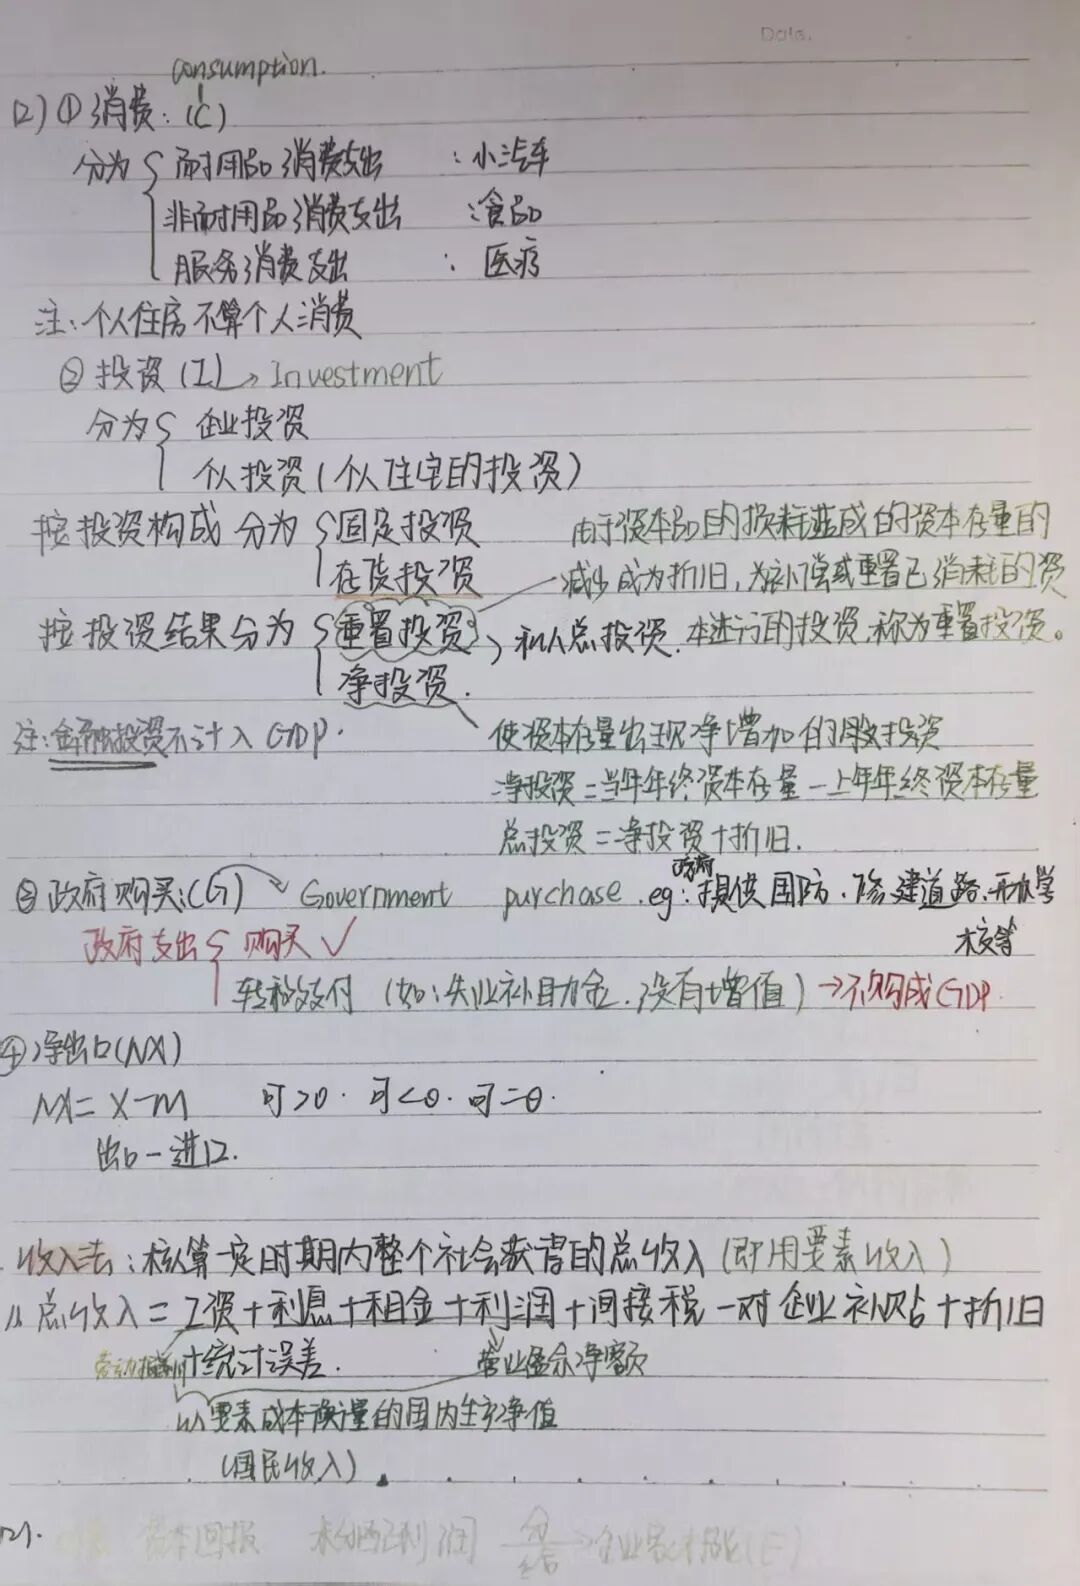 Date.
consumption.
(2) ① 消费：(C)
分为 { 耐用品消费支出 ：小汽车
非耐用品消费支出 ：食品
服务消费支出 ：医疗
注：个人住房不算个人消费
② 投资 (I) → Investment
分为 { 企业投资
个人投资 (个人住宅的投资)
按投资构成 分为 { 固定投资
存货投资
按投资结果分为 { 重置投资
净投资.
和为总投资.
由于资本品的损耗造成的资本存量的
减少成为折旧，为补偿或重置已消耗的资
本进行的投资，称为重置投资。
注：金融投资不计入 GDP.
使资本存量出现净增加的那投资
净投资=当年年终资本存量-上年年终资本存量
总投资=净投资+折旧.
③ 政府购买：(G) → Government purchase. eg：政府提供国防. 修建道路. 开办学
校等
政府支出 { 购买 √
转移支付 (如：失业补助金. 没有增值) → 不构成GDP.
④ 净出口(NX)
NX= X-M 可>0. 可<0. 可=0.
出口-进口.
收入法：核算一定时期内整个社会获得的总收入 (即用要素收入)
总收入=工资+利息+租金+利润+间接税-对企业补贴+折旧
+统计误差.
营业盈余净额
以要素成本衡量的国内生产净值
(国民收入).
(2).
资本回报 未分配利润